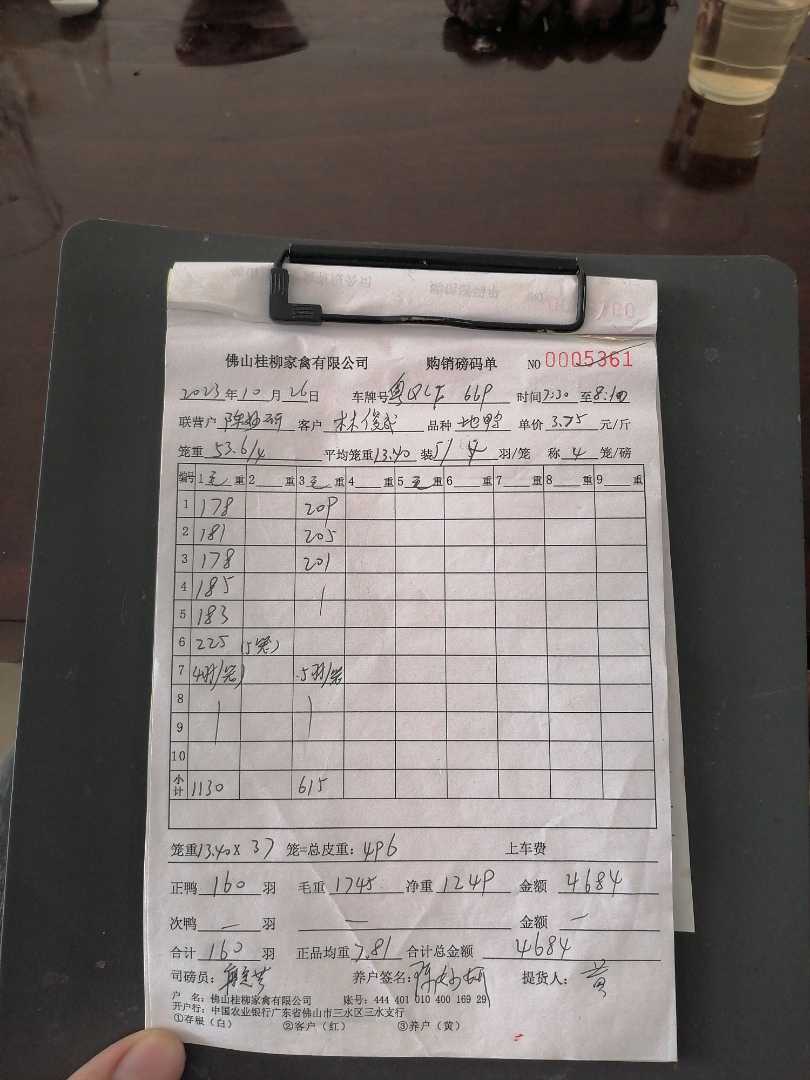 佛山桂柳家禽有限公司 购销磅码单 NO 0005361
2023年10月26日 车牌号粤 669 时间7:30至8:10
联营户 客户 林俊 品种 地鸭 单价 3.75 元/斤
笼重 53.6/4 平均笼重13.40 装5/4 羽/笼 称 4 笼/磅
编号 1毛重 2 重 3毛重 4 重 5毛重 6 重 7 重 8 重 9 重
1 178 209
2 181 205
3 178 201
4 185
5 183
6 225 (5笼)
7 4羽/笼 5羽/笼
8
9
10
小计 1130 615
笼重13.40×37 笼=总皮重:496 上车费
正鸭 160 羽 毛重 1745 净重 1249 金额 4684
次鸭 — 羽 — 金额 —
合计 160 羽 正品均重7.81 合计总金额 4684
司磅员: 养户签名: 提货人: 黄
户 名:佛山桂柳家禽有限公司 账号:444 401 010 400 169 29
开户行:中国农业银行广东省佛山市三水区三水支行
①存根(白) ②客户(红) ③养户(黄)